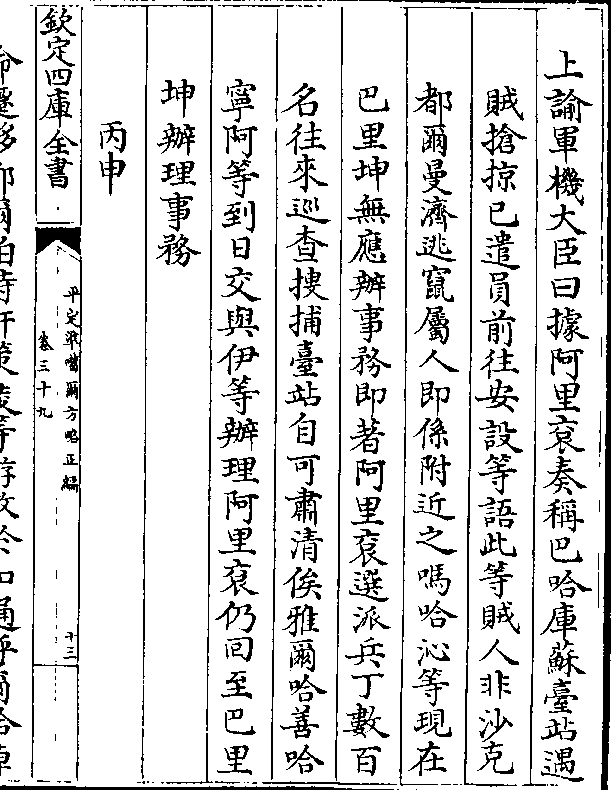 上諭軍機大臣曰據阿里衮奏稱巴哈庫蘇臺站遇
賊搶掠已遣員前往安設等語此等賊人非沙克
都爾曼濟逃竄屬人即係附近之嗎哈沁等現在
巴里坤無應辦事務即著阿里衮選派兵丁數百
名往來巡查搜捕臺站自可肅清俟雅爾哈善哈
寧阿等到日交與伊等辦理阿里衮仍回至巴里
坤辦理事務
丙申
欽定四庫全書
平定凖噶爾方略正編
卷三十九
十三
命遷移都爾伯特策凌等游牧於通呼爾哈